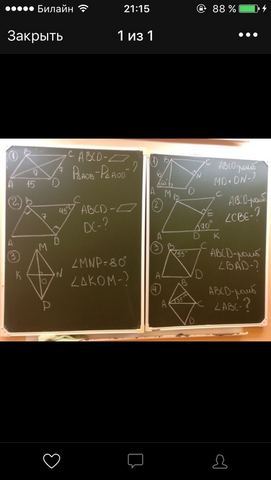 Билайн
21:15
88 %
Закрыть
1 из 1
1
B
C
ABCD-
P AOB - P AOD - ?
7
O
A
15
D
2
B
45°
C
ABCD-
7
DC-?
A
D
3
M
K
N
O
P
∠MNP=80°
∠ΔKOM-?
1
B
C
ABCD-ромб
MD+DN-?
N
60°
A
M
D
2
B
C
ABCD-ромб
∠CBE-?
E
70°
A
D
K
3
B
C
ABCD-ромб
∠BAD-?
A
D
4
B
ABCD-ромб
∠ABC-?
A
C
D